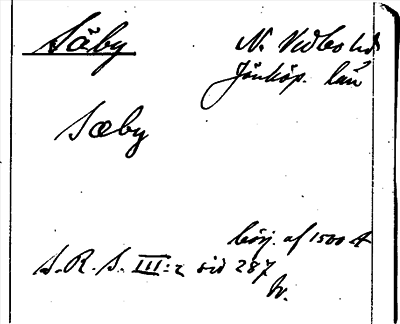 Säby N. Vedbo hd
Jönköp. län
Sæby
börj. af 1500 t
S.R.S. III:2 sid 287